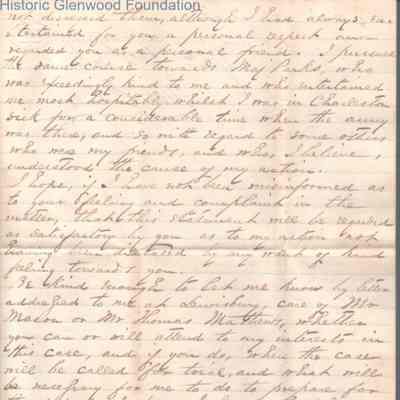 Historic Glenwood Foundation
not discussed them, although I had always en-
tertained for you a personal respect and
regarded you as a personal friend. I pursued
the same course towards Maj Parks, who
was exceedingly kind to me and who entertained
me most hospitably whilst I was in Charleston
sick for a considerable time when the army
was there, and so with regard to some others
who were my friends, and who, I believe,
understood the cause of my action.
I hope, if I have not been misinformed as
to your feeling and complaint in the
matter, that this statement will be regarded
as satisfactory by you as to my action not
having been dictated by any want of kind
feeling towards you.
Be kind enough to let me know by letter
addressed to me at Lewisburg, care of Mr
Mason or Mr Thomas Mathews, whether
you can or will attend to my interests in
this case, and if you do, when the case
will be called for trial, and what will
be necessary for me to do to prepare for